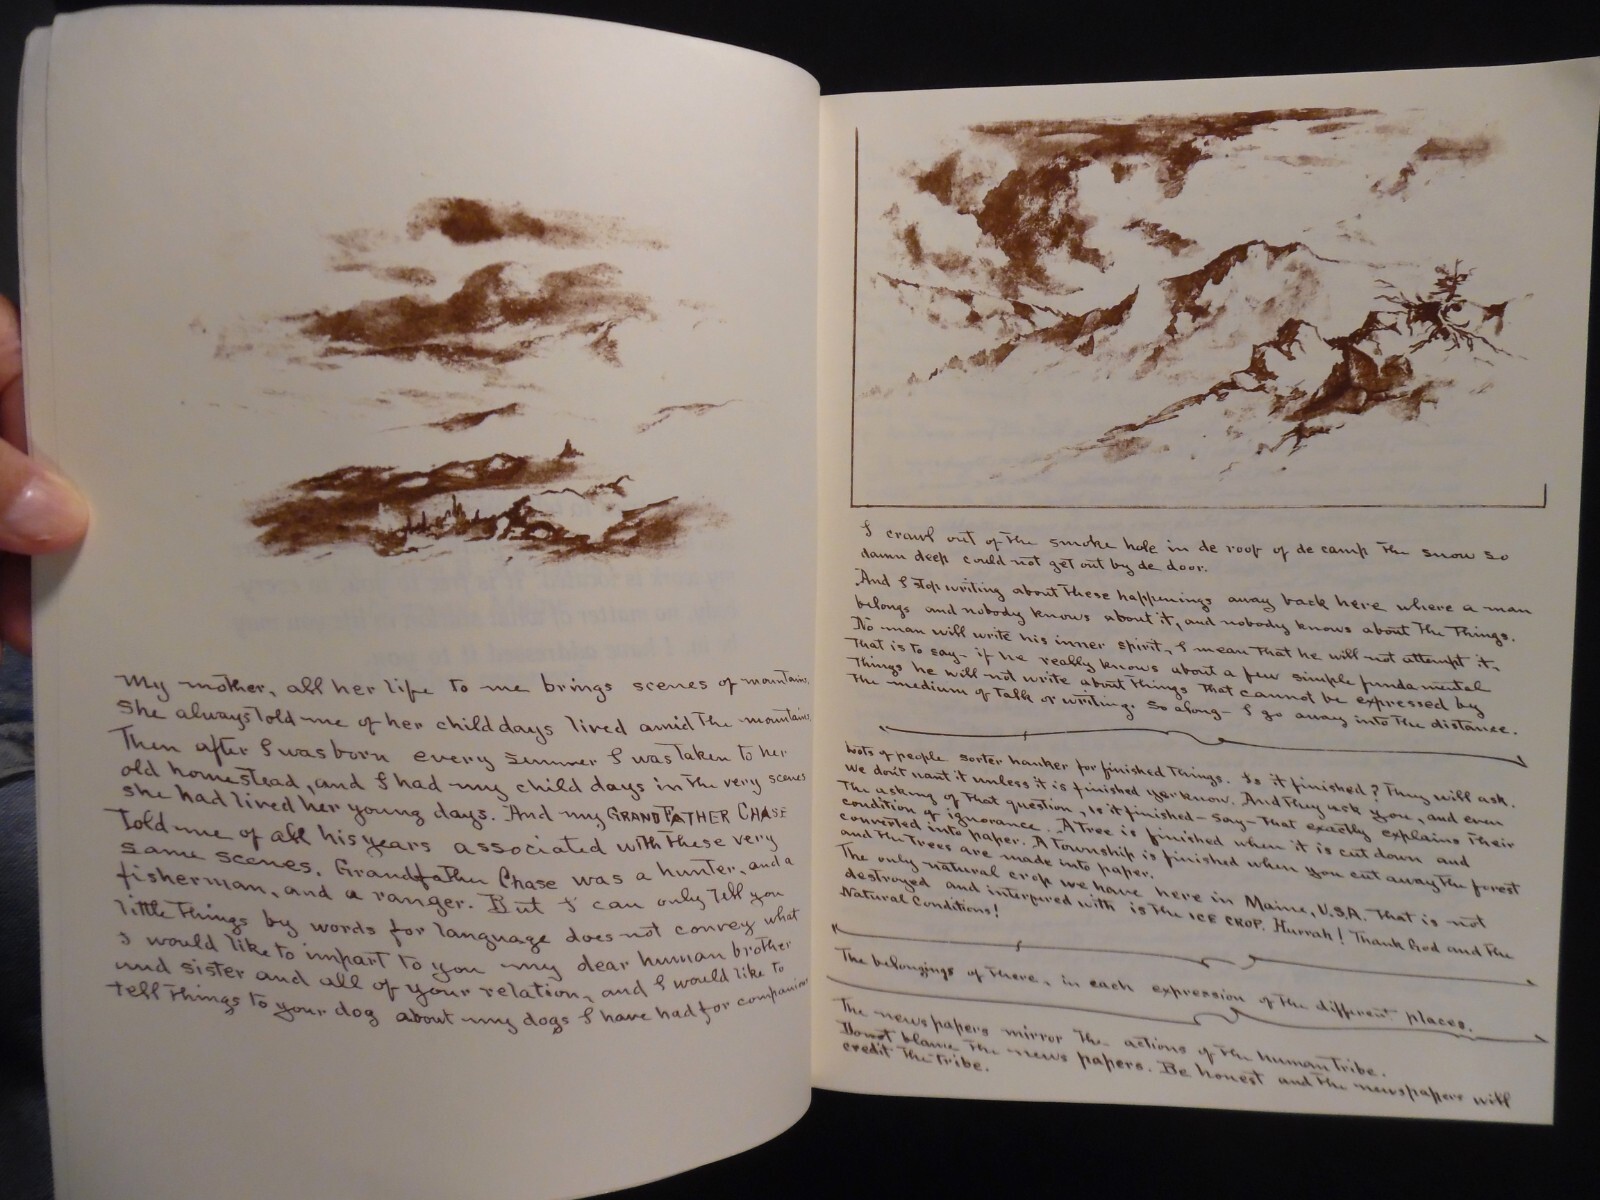 My mother, all her life to me brings scenes of mountains,
She always told me of her child days lived amid the mountains
Then after I was born every summer I was taken to her
old homestead, and I had my child days in the very scenes
she had lived her young days. And my GRANDFATHER CHASE
told me of all his years associated with these very
same scenes. Grandfather Chase was a hunter, and a
fisherman, and a ranger. But I can only tell you
little things by words for language does not convey what
I would like to impart to you my dear human brother
and sister and all of your relation, and I would like to
tell things to your dog about my dogs I have had for companions
I crawl out of the smoke hole in de roof of de camp the snow so
damn deep could not get out by de door.
And I stop writing about these happenings away back here where a man
belongs and nobody knows about it, and nobody knows about the things.
No man will write his inner spirit, I mean that he will not attempt it,
that is to say - if he really knows about a few simple fundamental
things he will not write about things that cannot be expressed by
the medium of talk or writing; So along - I go away into the distance.
Lots of people sorter hanker for finished things. Is it finished? They will ask.
We don't want it unless it is finished yer know. And they ask you, and even
the asking of that question, is it finished - say - that exactly explains their
condition of ignorance. A tree is finished when it is cut down and
converted into paper. A township is finished when you cut away the forest
and the trees are made into paper.
The only natural crop we have here in Maine, U.S.A. that is not
destroyed and interfered with is the ICE CROP. Hurrah! Thank God and the
Natural Conditions!
The belongings of there, in each expression of the different places.
The newspapers mirror the actions of the human tribe.
Do not blame the news papers. Be honest and the newspapers will
credit the tribe.